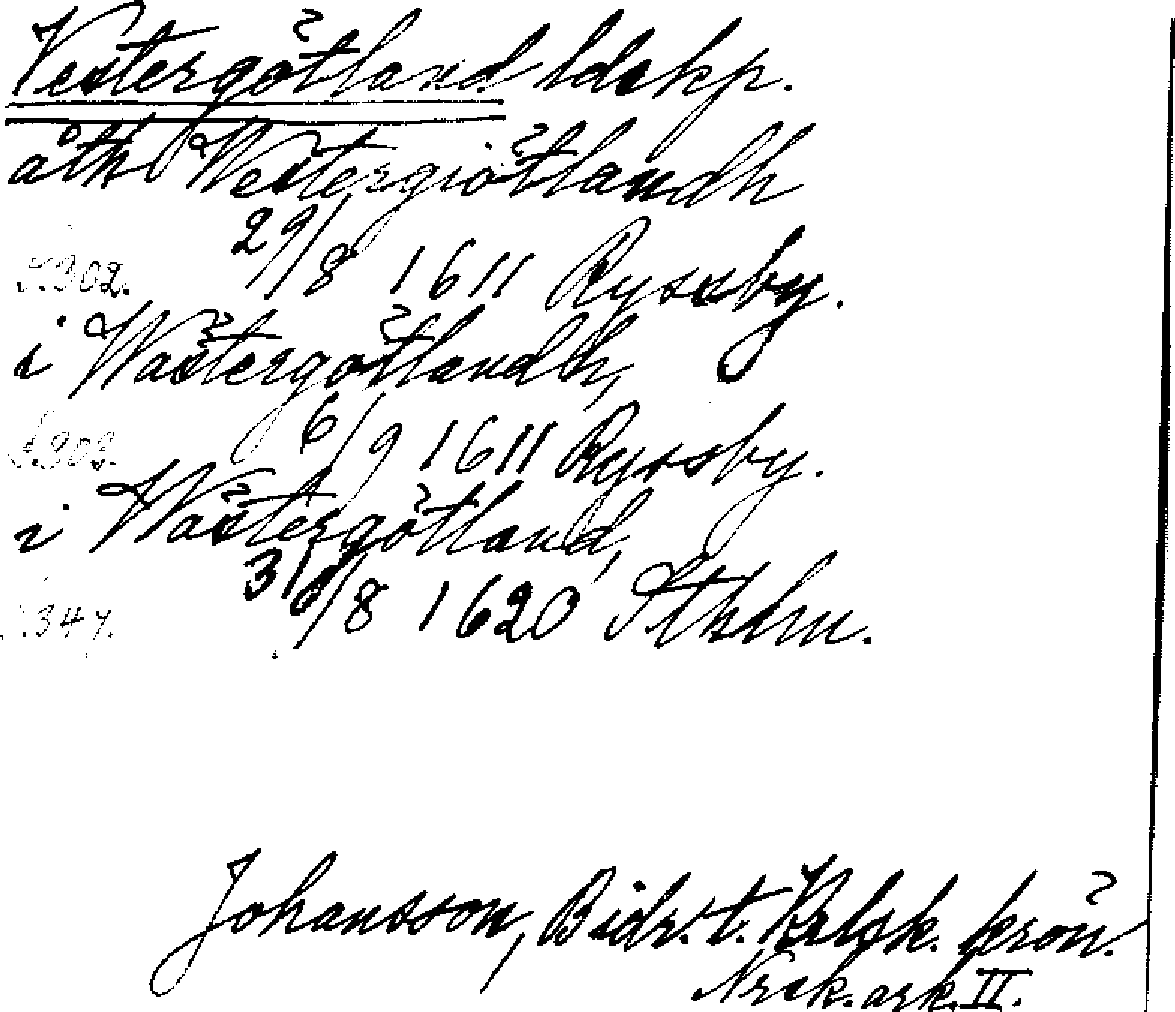 Vestergötland ldskp.
åth Westergiötlandh
29/8 1611 Ryssby.
s. 302.
i Wästergötlandh,
6/9 1611 Ryssby.
s. 303.
i Wästergötland,
31/8 1620 Sthlm.
s. 347.
Johansson, Bidr. t. Krlsk. krön.
Nrsk. ark. II.